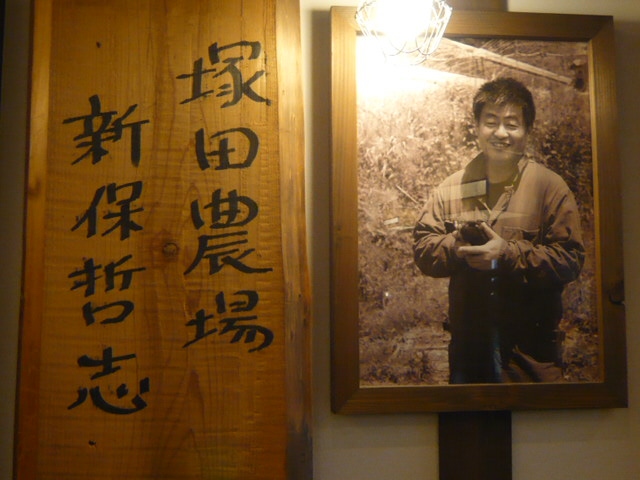 塚田農場
新保哲志